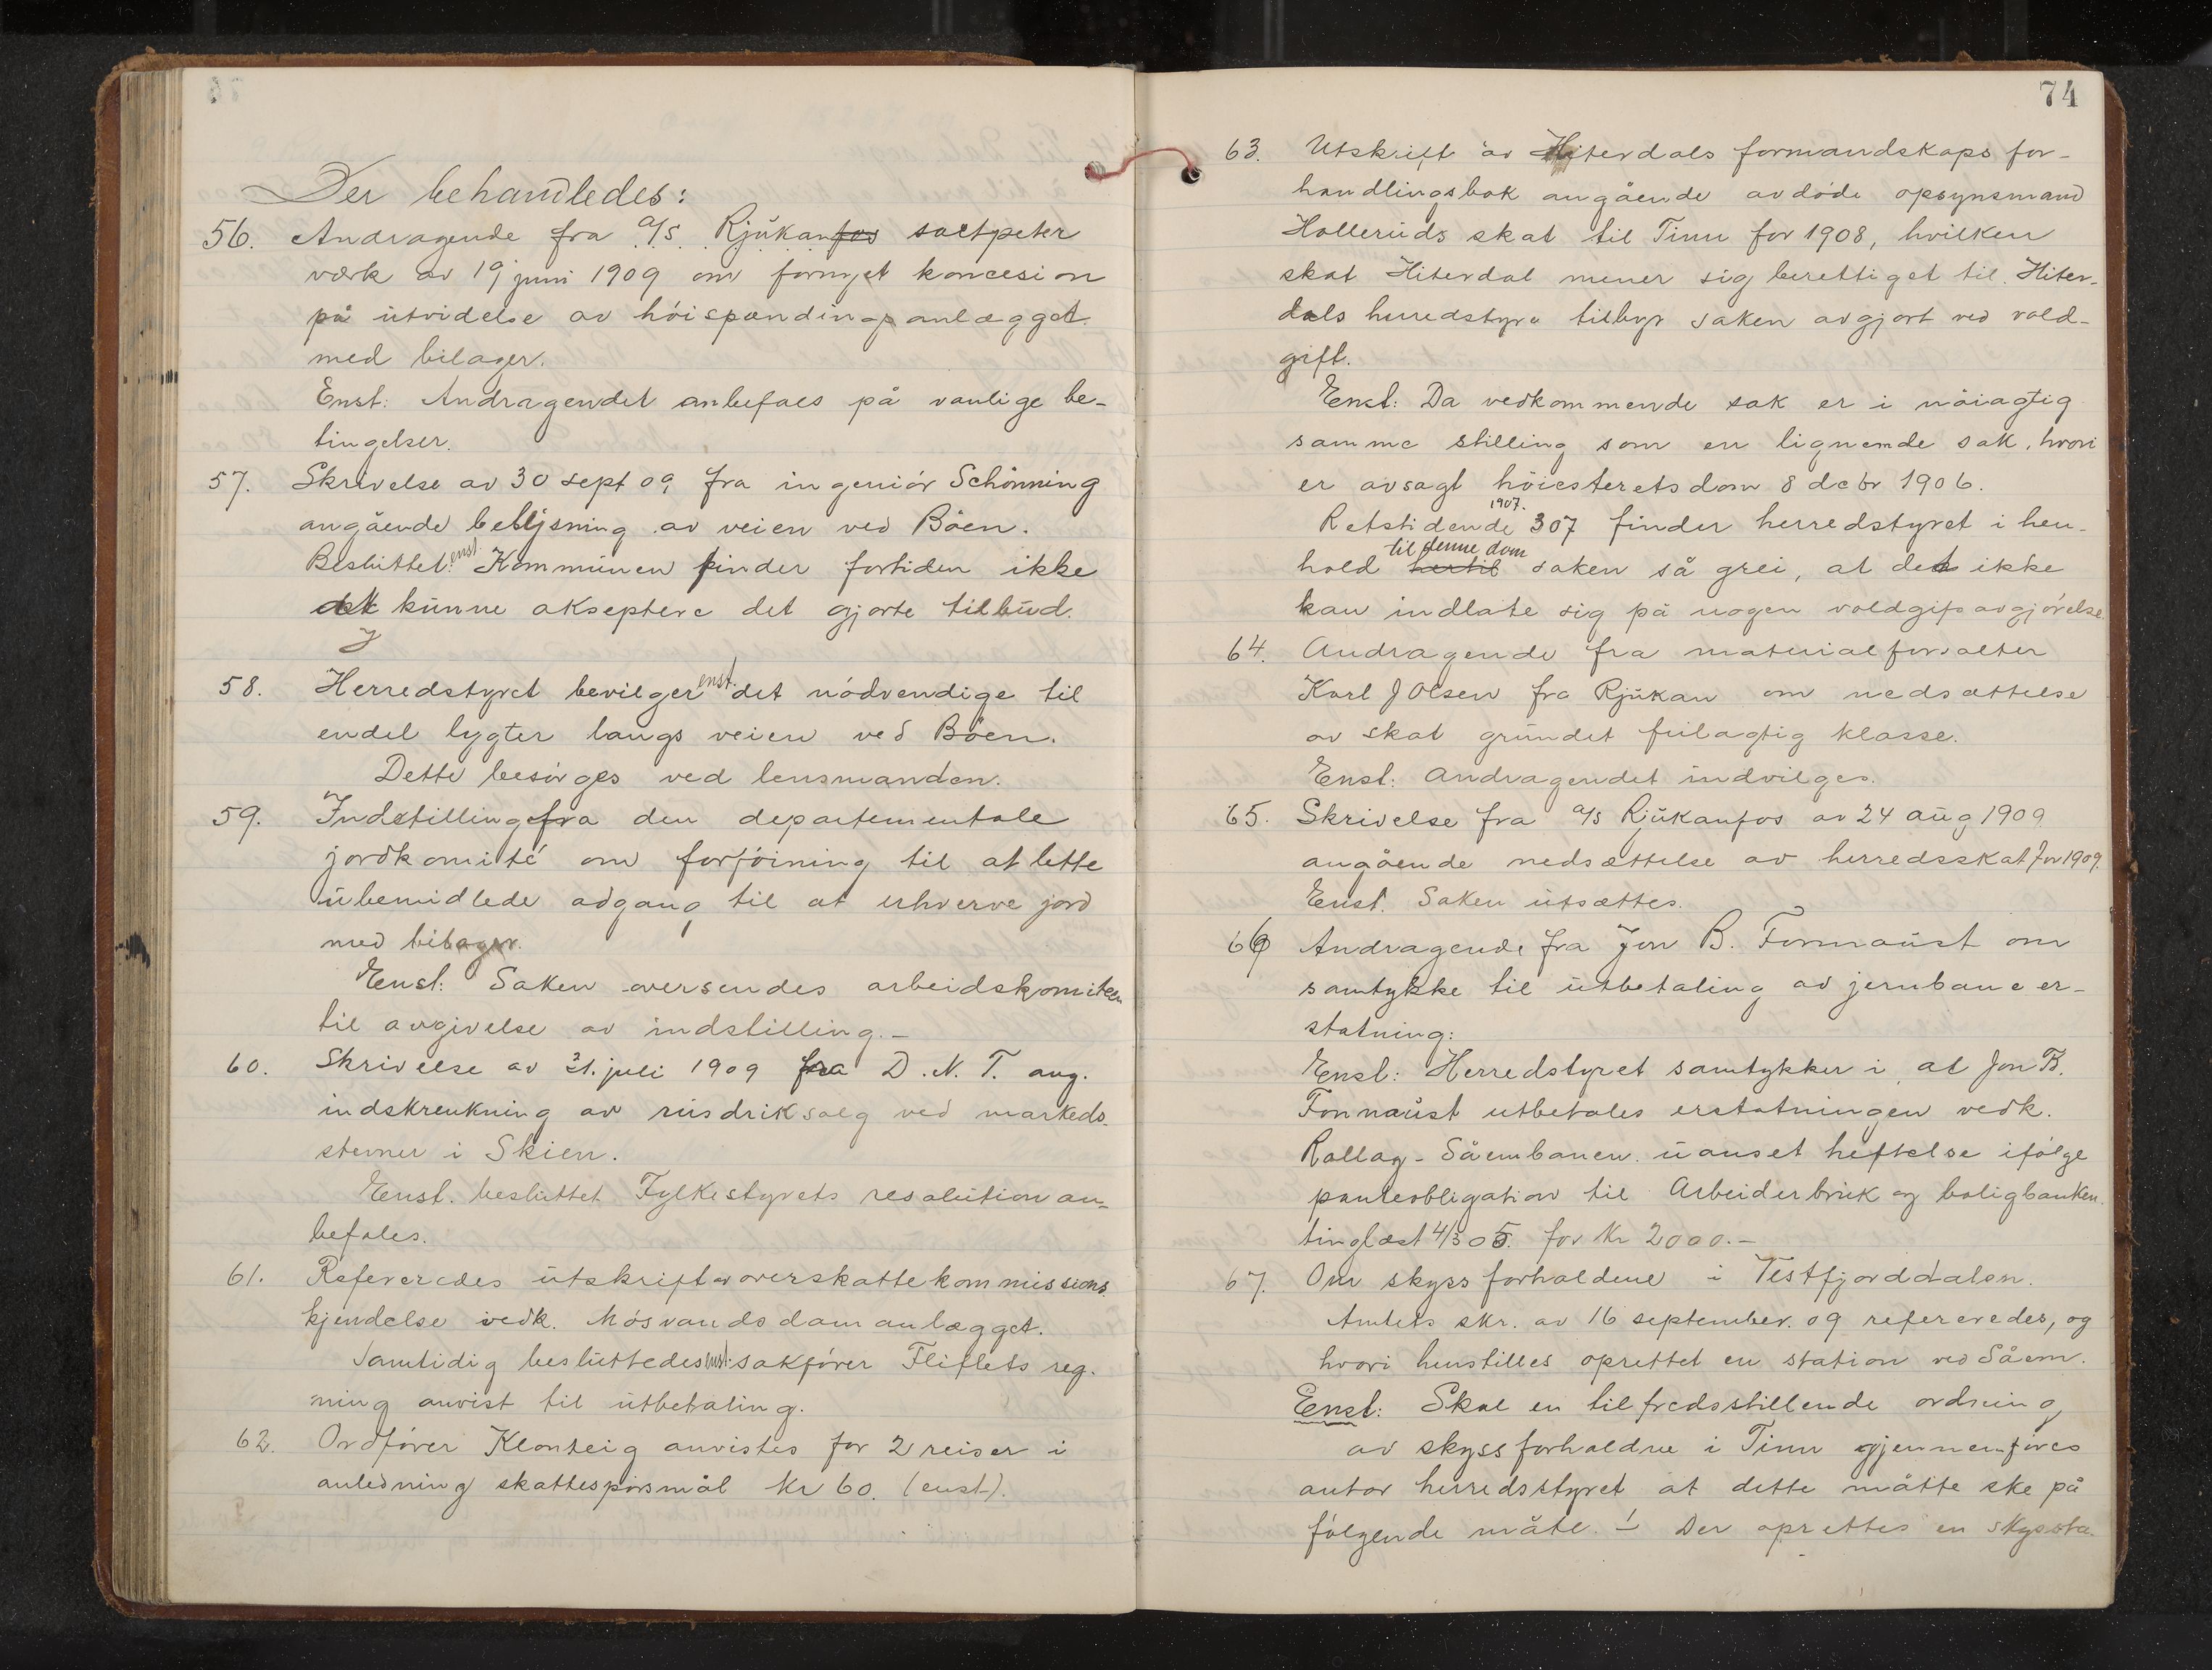 Der behandledes:
56. Andragende fra a/s Rjukanfos saltpeter
værk av 19 juni 1909 om fornyet koncesion
på utvidelse av høispændingsanlægget
med bilager.
Enst: Andragendet anbefales på vanlige be-
tingelser.
57. Skrivelse av 30 sept 09 fra ingeniør Schönning
angående belysning av veien ved Bøen.
Besluttet enst. Kommunen finder fortiden ikke
at kunne akseptere det gjorte tilbud.
58. Herredstyret bevilger enst. det nødvendige til
endel lygter langs veien ved Bøen.
Dette besørges ved lensmanden.
59. Indstilling fra den departementale
jordkomité om forføining til at lette
ubemidlede adgang til at erhverve jord
med bilager.
Enst: Saken oversendes arbeidskomiteen
til avgivelse av indstilling.-
60. Skrivelse av 31. juli 1909 fra D.N.T. ang.
indskrenkning av rusdriksalg ved markeds-
stevner i Skien.
Enst. besluttet Fylkestyrets resolution an-
befales.
61. Refereredes utskrift av overskattekommissions
kjendelse vedk. Møsvandsdamanlægget.
Samtidig besluttedes enst: sakfører Fliflets reg-
ning anvist til utbetaling.
62. Ordfører Klonteig anvistes for 2 reiser i
anledning skattespørsmål kr 60. (enst).
74
63. Utskrift av Hiterdals formandskaps for-
handlingsbok angående avdøde opsynsmand
Holleruds skat til Tinn for 1908, hvilken
skat Hiterdal mener sig berettiget til. Hiter-
dals herredstyre tilbyr saken avgjort ved vold-
gift.
Enst: Da vedkommende sak er i nøiagtig
samme stilling som en lignende sak, hvori
er avsagt høiesteretsdom 8 decbr 1906.
Retstidende 1907. 307 finder herredstyret i hen-
hold hertil til denne dom saken så grei, at det ikke
kan indlate sig på nogen voldgifsavgjørelse.
64. Andragende fra materialforvalter
Karl J Olsen fra Rjukan om nedsættelse
av skat grundet feilagtig klasse.
Enst: Andragendet indvilges.
65. Skrivelse fra a/s Rjukanfos av 24 aug 1909
angående nedsættelse av herredsskat for 1909.
Enst. Saken utsættes.
66 Andragende fra Jon B. Fonnaust om
samtykke til utbetaling av jernbaneer-
statning:
Enst: Herredstyret samtykker i at Jon B.
Fonnaust utbetales erstatningen vedk.
Rollag-Såembanen uanset heftelse ifølge
panteobligation til Arbeiderbruk og boligbanken
tinglæst 4/3 05. for Kr 2000.-
67. Om skyssforholdene i Vestfjorddalen.
Amtets skr. av 16 september. 09 refereredes, og
hvori henstilles oprettet en station ved Såem.
Enst: Skal en tilfredsstillende ordning
av skyssforholdne i Tinn gjennemføres
antar herredsstyret at dette måtte ske på
følgende måte. - Der oprettes en skyssta-